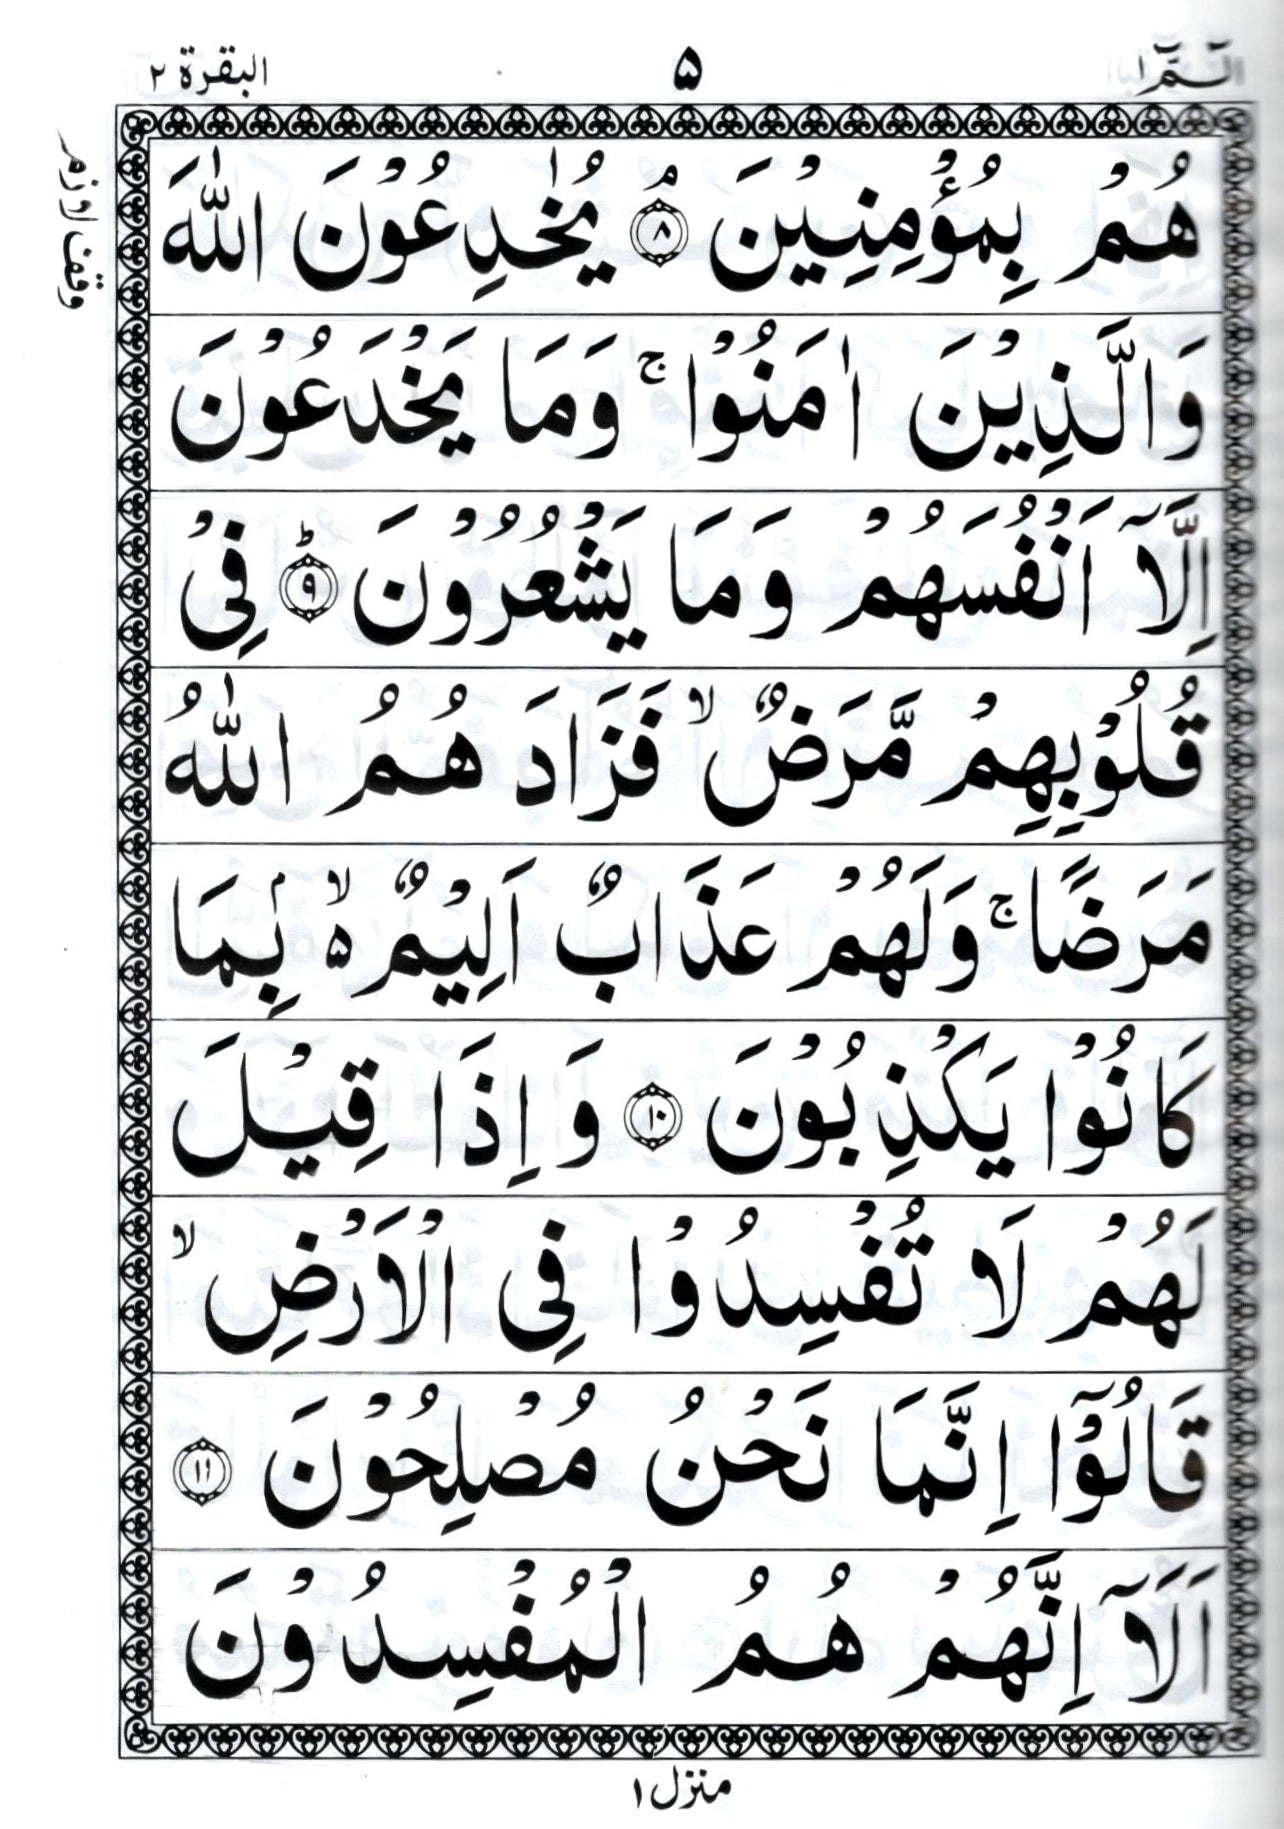 الٓمّٓ ١ ۵ البقرة ٢
وقف لازم
هُمْ بِمُؤْمِنِيْنَ ۘ﴿٨﴾ يُخٰدِعُوْنَ اللّٰهَ
وَالَّذِيْنَ اٰمَنُوْا ۚ وَمَا يَخْدَعُوْنَ
اِلَّآ اَنْفُسَهُمْ وَمَا يَشْعُرُوْنَ ؕ﴿٩﴾ فِيْ
قُلُوْبِهِمْ مَّرَضٌ ۙ فَزَادَ هُمُ اللّٰهُ
مَرَضًا ۚ وَلَهُمْ عَذَابٌ اَلِيْمٌ ۵ۙ بِۢمَا
كَانُوْا يَكْذِبُوْنَ ﴿١٠﴾ وَ اِذَا قِيْلَ
لَهُمْ لَا تُفْسِدُوْا فِى الْاَرْضِ ۙ
قَالُوْٓا اِنَّمَا نَحْنُ مُصْلِحُوْنَ ﴿١١﴾
اَلَآ اِنَّهُمْ هُمُ الْمُفْسِدُوْنَ
منزل ١